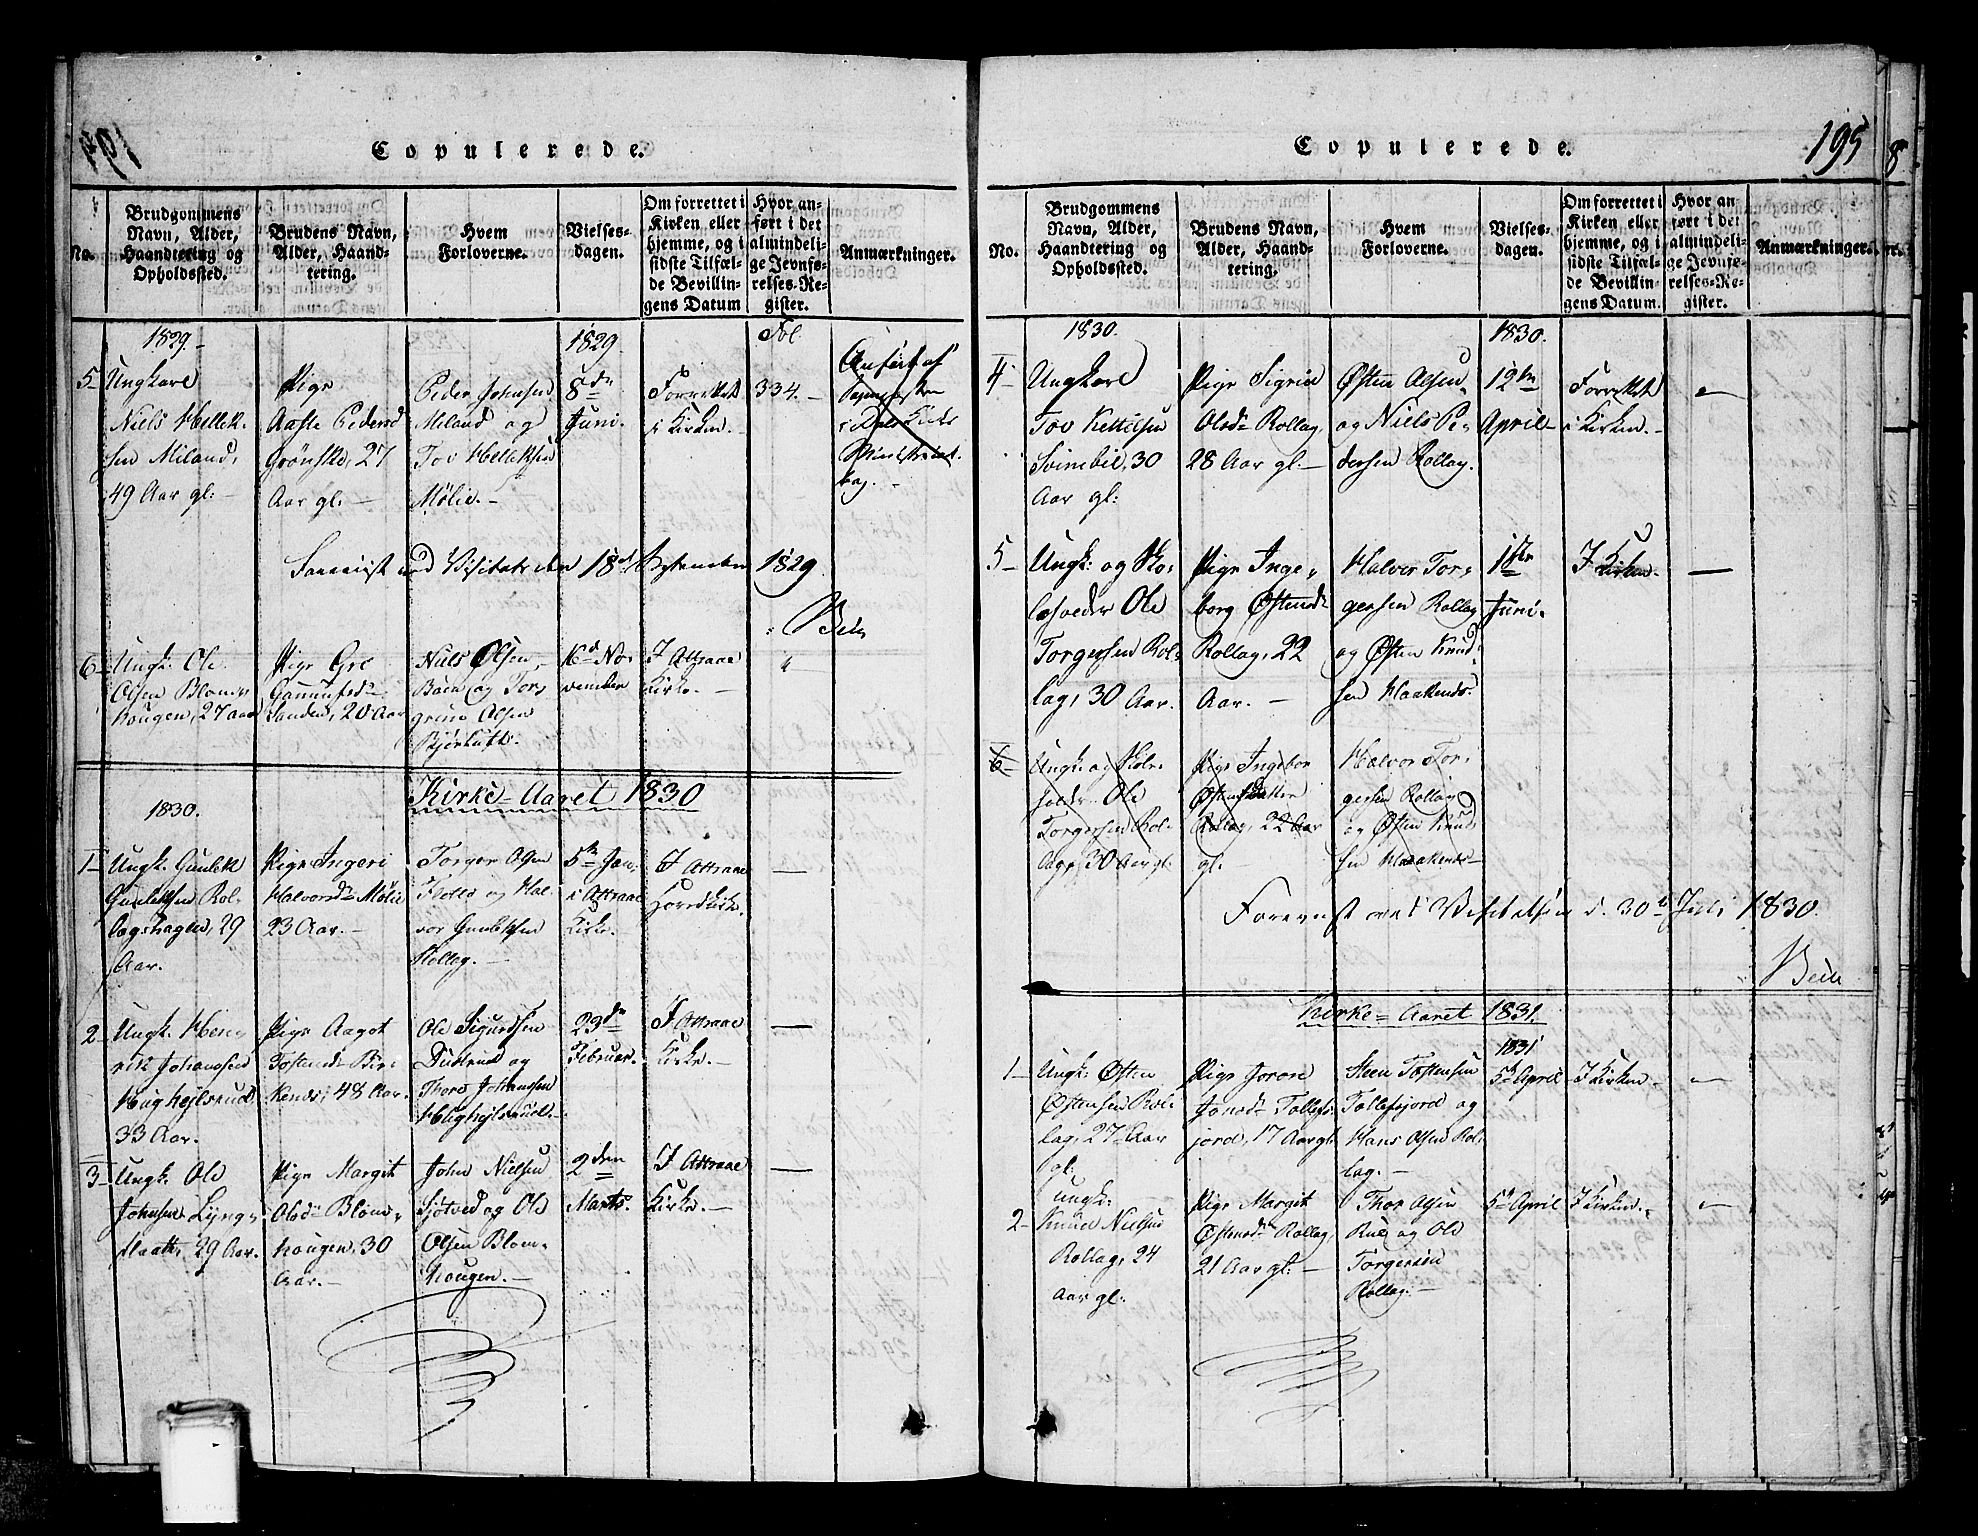 194
Copulerede.
No.
Brudgommens
Navn, Alder,
Haandtering og
Opholdssted.
Brudens Navn,
Alder, Haand-
tering.
Hvem
Forloverne.
Vielses-
dagen.
Om forrettet i
Kirken eller
hjemme, og i
sidste Tilfæl-
de Bevillin-
gens Datum
Hvor an-
ført i det
almindeli-
ge Jevnfø-
relses-Re-
gister.
Anmærkninger.
1829.
1829.
Fol.
5
Ungkarl
Niels Hellek-
sen Miland,
49 Aar gl:
Pige
Aaste Pedersd
Grönske, 27
Aar gl:
Peder Johnsen
Miland og
Tov Helleksen
Mölie.
8de
Juni.
Forrettet
i Kirken.
334.
Anført af
i
bog.
ved Visitatsen 18de September 1829
6
Ungk: Ole
Olsen Blom-
hougen, 27 aar
Pige Gro
Sanden, 20 Aar
Niels Olsen
Böen og Tor-
grim Olsen
16d No-
vember
I Attraae
Kirke.
Kirke-Aaret 1830
1830.
1
Ungk: Gunlek
Gunleksen Rol-
lagshagen, 29
Aar.
Pige Ingeri
Halvorsd Mölie
23 Aar.
Torger Olsen
og Hal-
vor Gunleksen
Rollag.
5te Jan.
i Attraae
Kirke.
I Attraae
2
Ungk: Hen-
rik Johansen
Haghejlsrud
33 Aar.
Pige Aagot
Tostensd Bir-
kenes, 48 Aar.
Ole Sigurdsen
og
Thore Johansen
Haghejlsrud.
23de
Februar.
I Attraae
Kirke.
3
Ungk: Ole
Johnsen Lyng-
flaatt, 29 Aar.
Pige Margit
Olsdr Blom-
hougen, 30
Aar.
John Nielsen
Sjötved og Ole
Olsen Blom-
hougen.
2den
Marts.
I Attraae
Kirke.
195
Copulerede.
No.
Brudgommens
Navn, Alder,
Haandtering og
Opholdssted.
Brudens Navn,
Alder, Haand-
tering.
Hvem
Forloverne.
Vielses-
dagen.
Om forrettet i
Kirken eller
hjemme, og i
sidste Tilfæl-
de Bevillin-
gens Datum.
Hvor an
ført i det
almindeli-
ge Jevnfø-
relses-Re-
gister.
Anmærkninger.
1830.
1830.
4
Ungkarl
Tov Kettilsen
Svimbil, 30
Aar gl:
Pige Sigrid
Olsdr Rollag,
28 Aar gl.
Østen Olsen
og Niels Pe-
dersen Rollag.
12te
April
Forrettet
i Kirken.
5
Ungk: og Sko-
leholder Ole
Torgersen Rol-
lag, 30 Aar.
Pige Inge-
borg Østensdr
Rollag, 22
Aar.
Halvor Tor-
gersen Rollag
og Østen Knud-
sen Haakenes.
1ste
Juni.
I
Kirken.
6
Ungk: og Skole-
holder Ole
Torgersen Rol-
lag, 30 Aar gl.
Pige Ingebor
Østensdatter
Rollag, 22 Aar
gl.
Halvor Tor-
gersen Rollag
og Østen Knud-
sen Haakenes
Foreviist ved Visitatsen d. 30te Juli 1830.
Kirke-Aaret 1831.
1831
1
Ungk: Østen
Østensen Rol-
lag, 27 Aar
gl:
Pige Jorore
Jonsdr Tollefs-
jord, 17 Aar gl.
Steen Tostensen
Tollefsjord og
Hans Olsen Rol-
lag.
5te April
I Kirken
2
Ungk:
Knud Nielsen
Rollag, 24
Aar gl:
Pige Margit
Østensdr Rollag,
21 Aar gl:
Thor Olsen
Rue og Ole
Torgersen
Rollag.
5te April
I Kirken.